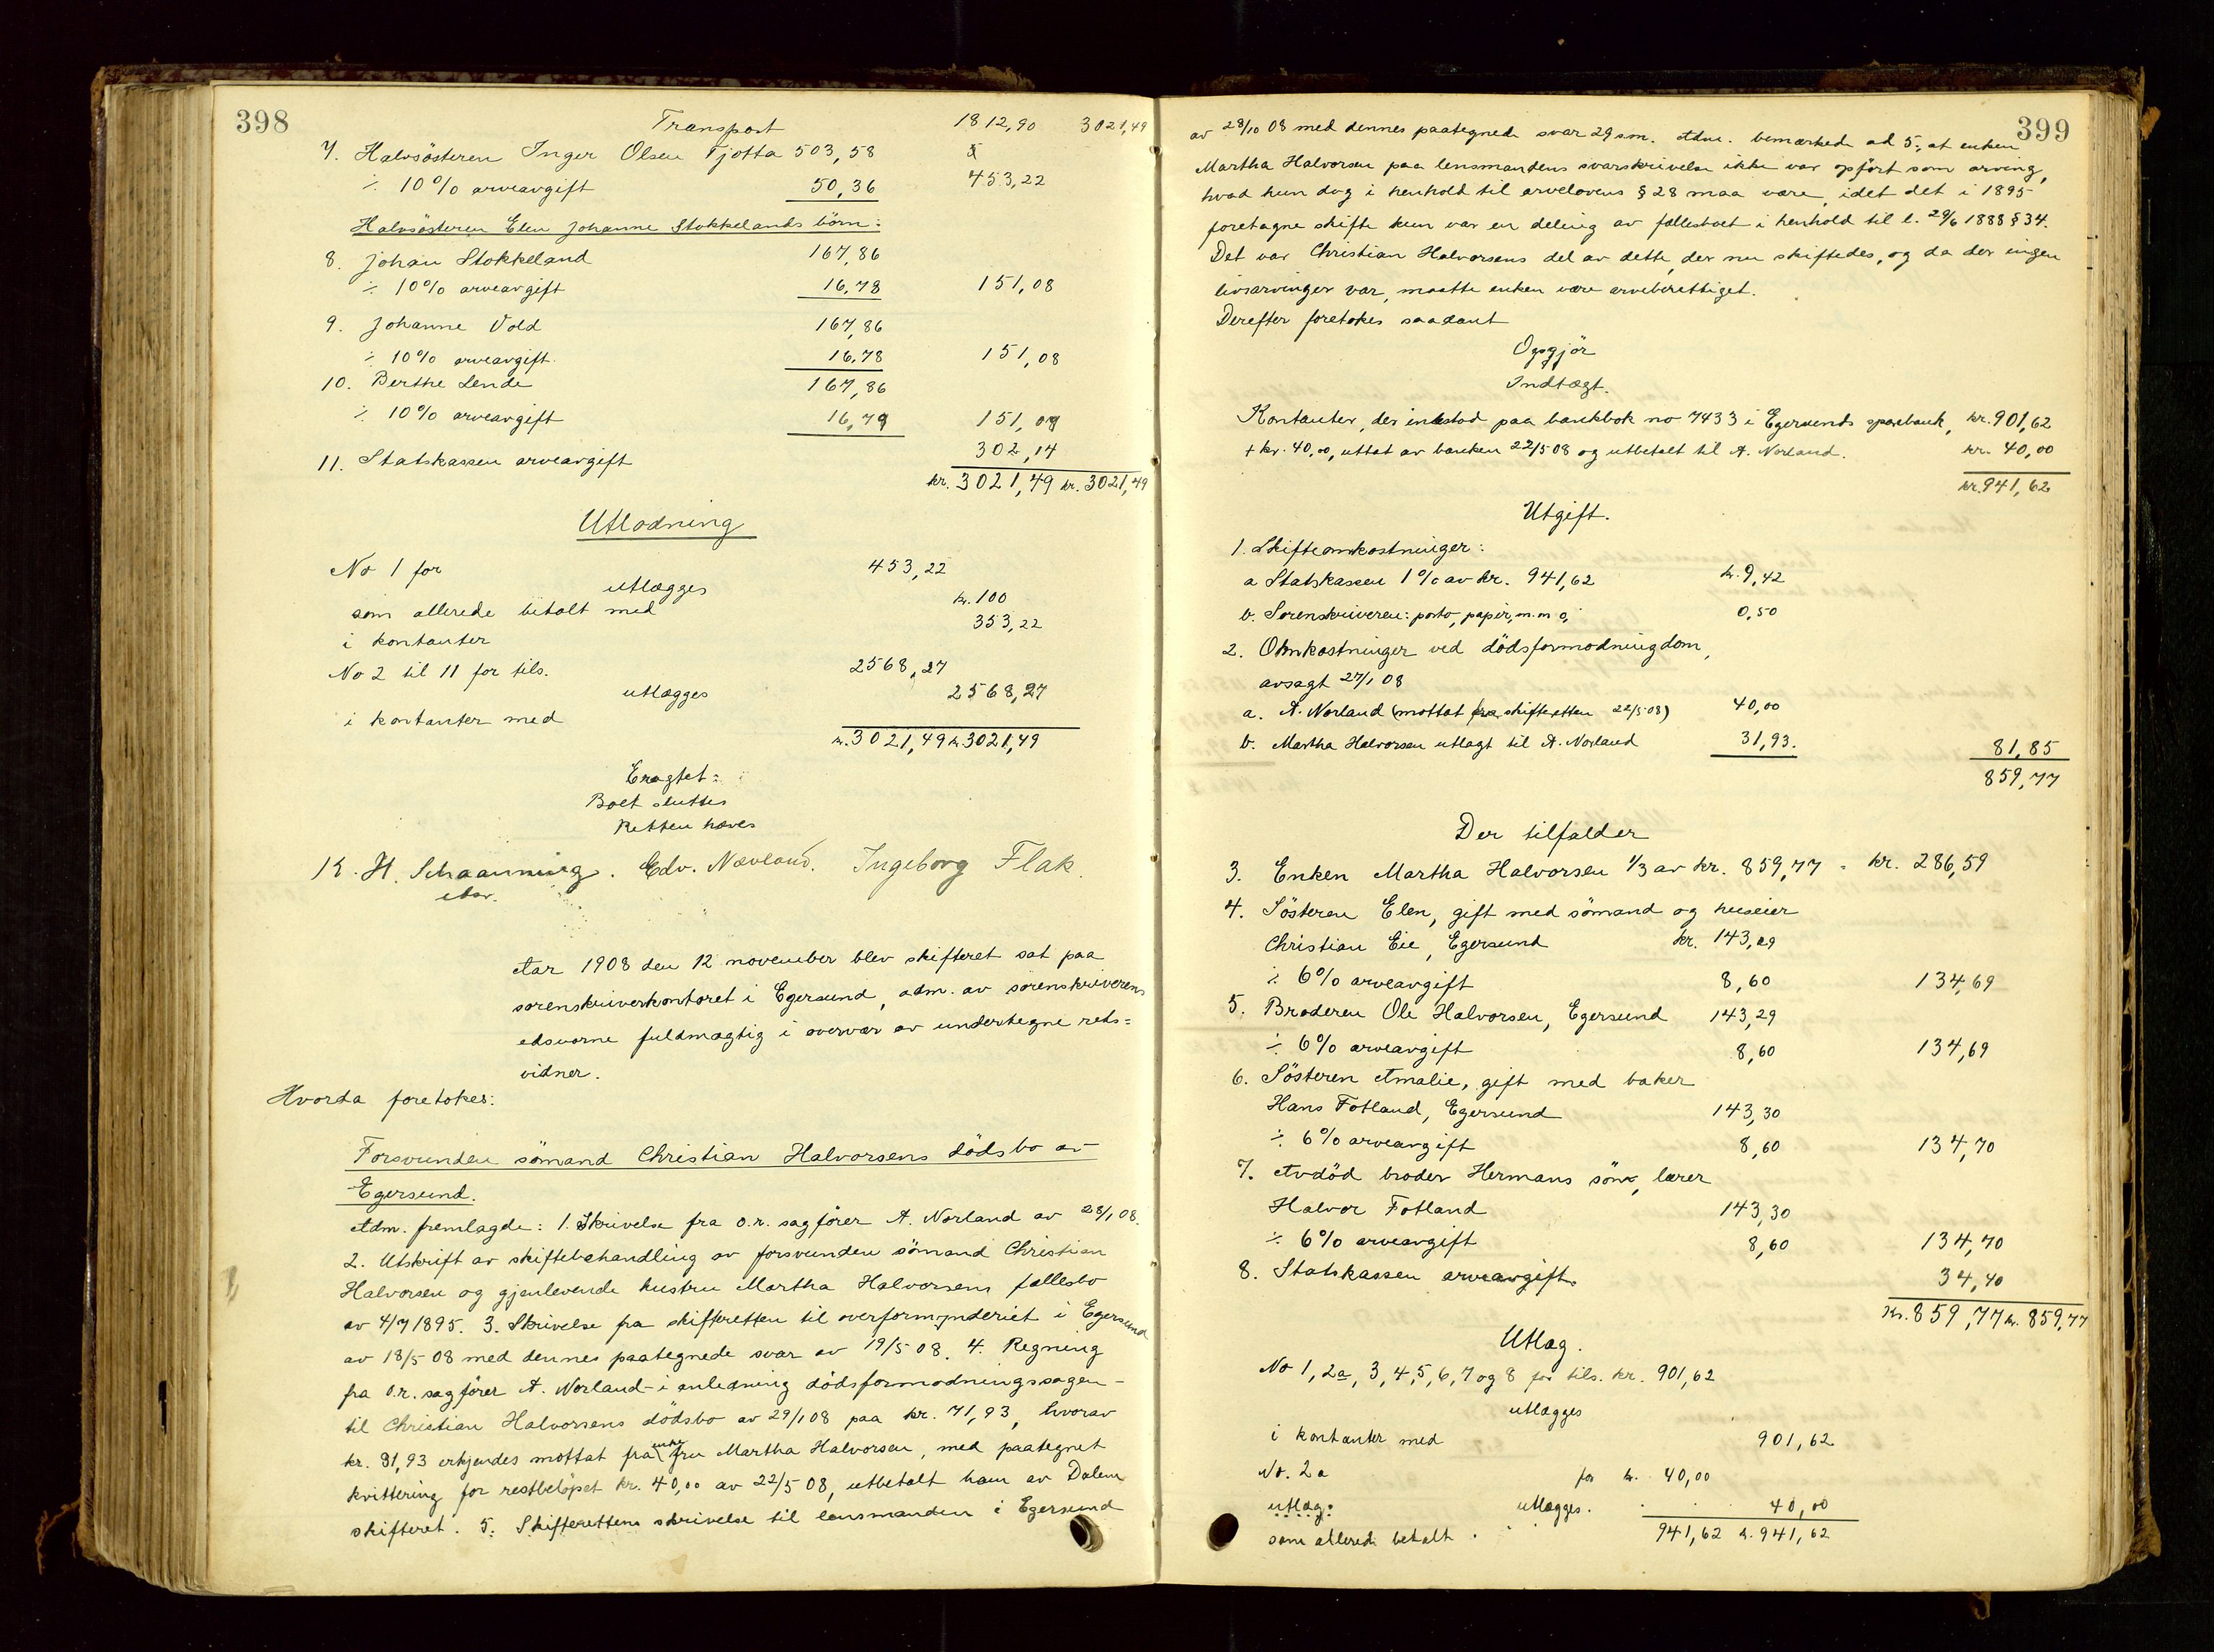 398
Transport 1812,90 3021,49
7. Halvsösteren Inger Olsen Tjotta 503,58
÷ 10% arveavgift 50,36 453,22
Halvsösteren Elen Johanne Stokkelands börn:
8. Johan Stokkeland 167,86
÷ 10% arveavgift 16,78 151,08
9. Johanne Vold 167,86
÷ 10% arveavgift. 16,78 151,08
10. Berthe Lende 167,86
÷ 10% arveavgift 16,79 151,07
11. Statskassen arveavgift 302,14
kr. 3021,49 kr. 3021,49
Utlodning
No 1 for 453,22
utlægges
som allerede betalt med kr. 100
i kontanter 353,22
No 2 til 11 for tils. 2568,27
utlægges
i kontanter med 2568,27
kr. 3021,49 kr. 3021,49
Eragtet:
Boet sluttes
Retten hæves
K. H. Schaanning. Edv. Nævland. Ingeborg Flak.
Aar 1908 den 12 november blev skifteret sat paa
sorenskriverkontoret i Egersund, adm. av sorenskriverens
edsvorne fuldmægtig i overvær av undertegne rets=
vidner.
Hvorda foretokes:
Forsvunden sömand Christian Halvorsens dödsbo av
Egersund.
Adm. fremlagde: 1. Skrivelse fra o.r. sagförer A. Norland av 28/1 08.
2. Utskrift av skiftebehandling av forsvunden sömand Christian
Halvorsen og gjenlevende hustru Martha Halvorsens fællesbo
av 4/7 1895. 3. Skrivelse fra skifteretten til overformynderiet i Egersund
av 18/5 08 med dennes paategnede svar av 19/5 08. 4. Regning
fra o.r. sagförer A. Norland - i anledning dödsformodningssagen -
til Christian Halvorsens dödsbo av 29/1 08 paa kr. 71,93, hvorav
kr. 31,93 erkjendes mottat fra enke fru Martha Halvorsen, med paategnet
kvittering for restbelöpet kr. 40,00 av 22/5 08, utbetalt ham av Dalem
skifteret. 5. Skifterettens skrivelse til lensmanden i Egersund
399
av 28/10 08 med dennes paategnede svar 29 s.m. Adm. bemærkede ad 5:, at enken
Martha Halvorsen paa lensmandens svarskrivelse ikke var opfört som arving,
hvad hun dog i henhold til arvelovens § 28 maa være, idet det i 1895
foretagne skifte kun var en deling av fællesboet i henhold til l. 29/6 1888 § 34.
Det var Christian Halvorsens del av dette, der nu skiftedes, og da der ingen
livsarvinger var, maatte enken være arveberettiget.
Derefter foretokes saadant
Opgjör
Indtægt.
Kontanter, der indestod paa bankbok no 7433 i Egersunds sparebank, kr. 901,62
+ kr. 40,00, uttat av banken 22/5 08 og utbetalt til A. Norland. kr. 40,00
kr. 941,62
Utgift.
1. Skifteomkostninger:
a Statskassen 1% av kr. 941,62 kr. 9,42
b. Sorenskriveren: porto, papir, m.m 0,50
2. Omkostninger ved dödsformodningdom,
avsagt 27/1 08
a. A. Norland (mottat fra skifteretten 22/5 08) 40,00
b. Martha Halvorsen utlagt til A. Norland 31,93. 81,85
859,77
Der tilfalder
3. Enken Martha Halvorsen 1/3 av kr. 859,77 = kr. 286,59
4. Sösteren Elen, gift med sömand og huseier
Christian Eie, Egersund kr. 143,29
÷ 6% arveavgift 8,60 134,69
5. Broderen Ole Halvorsen, Egersund 143,29
÷ 6% arveavgift 8,60 134,69
6. Sösteren Amalie, gift med baker
Hans Fotland, Egersund 143,30
÷ 6% arveavgift 8,60 134,70
7. Avdöd broder Hermans sön, lærer
Halvor Fotland 143,30
÷ 6% arveavgift 8,60 134,70
8. Statskassen arveavgift. 34,40
kr. 859,77 kr. 859,77
Utlæg.
No 1, 2a, 3, 4, 5, 6, 7 og 8 for tils. kr. 901,62
utlægges
i kontanter med 901,62
No. 2a for kr. 40,00
utlæg: utlægges. 40,00
som allerede betalt. 941,62 kr. 941,62